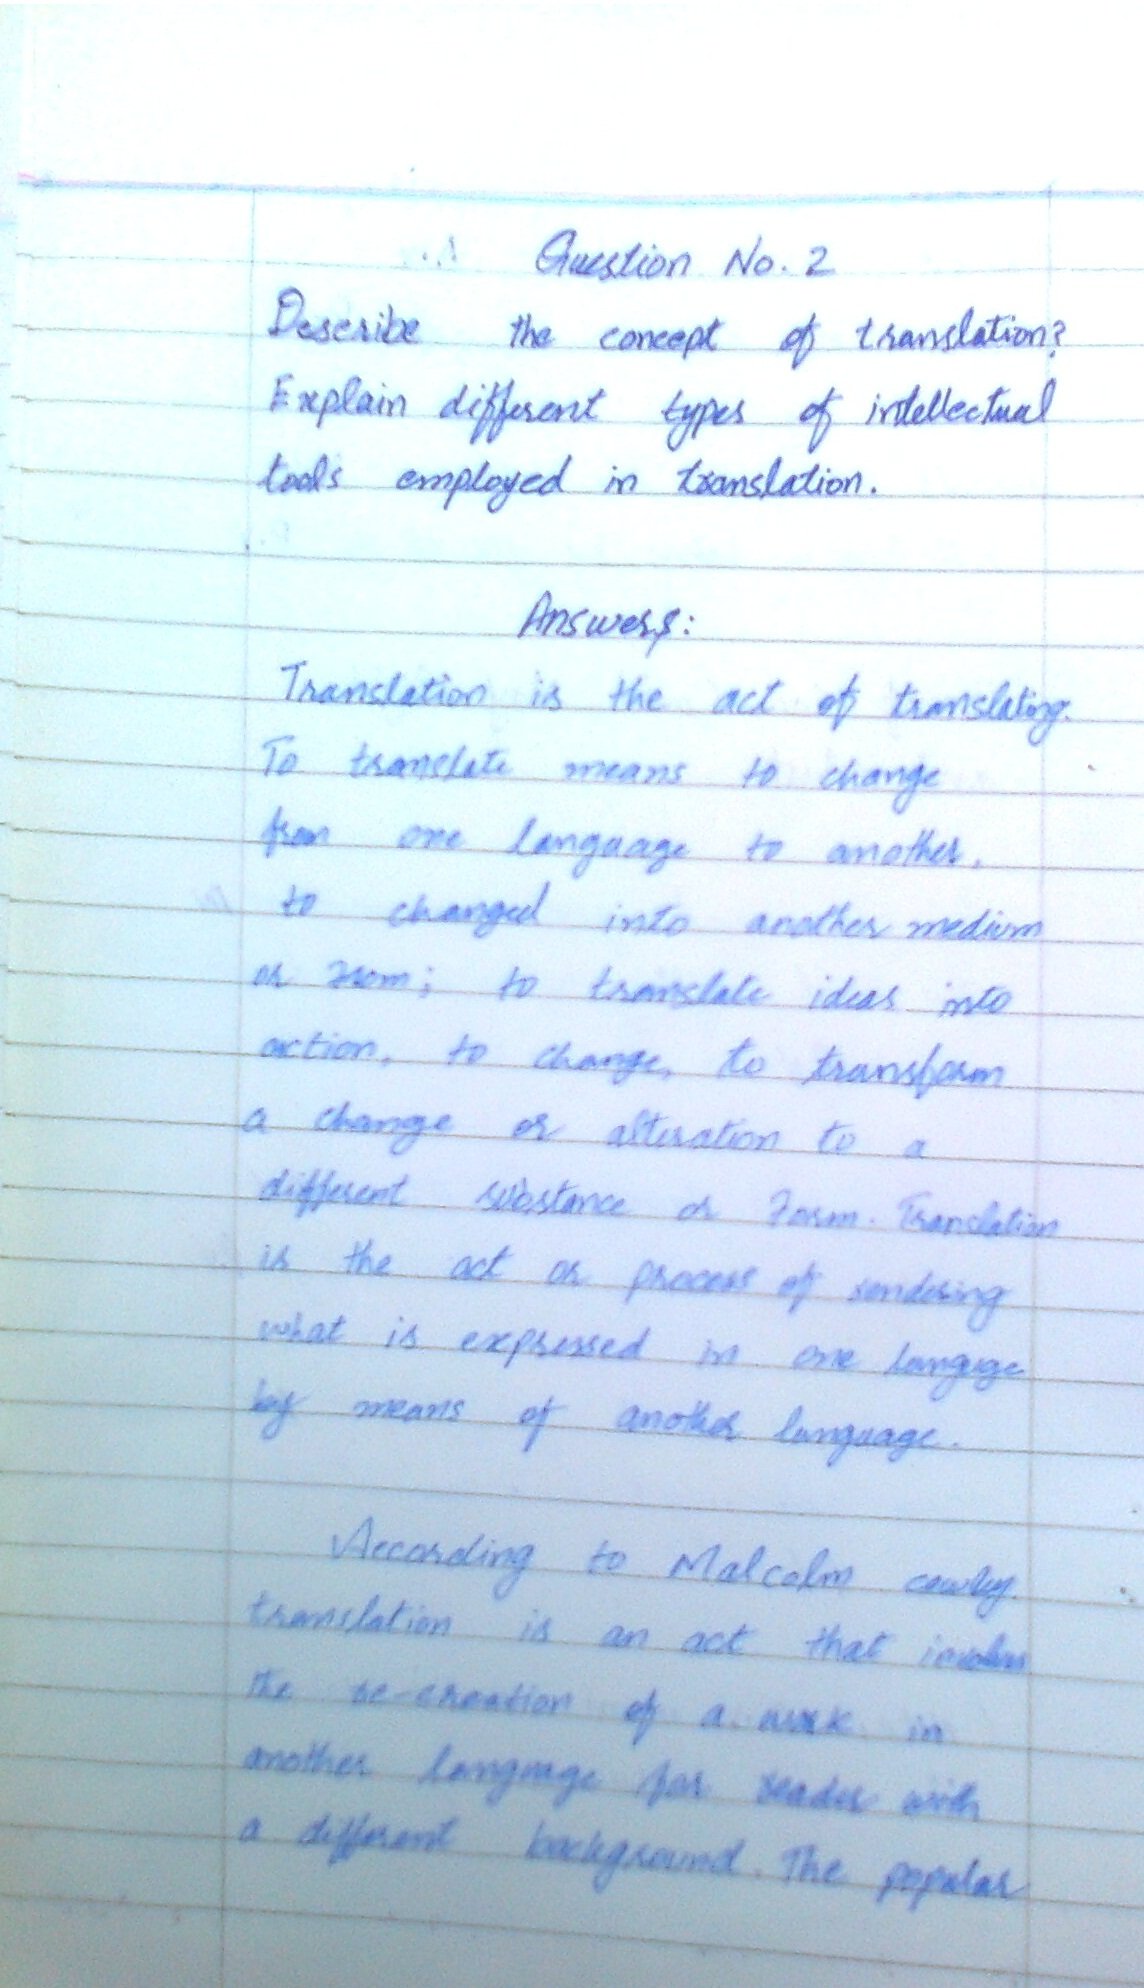 Question No. 2
Describe the concept of translation?
Explain different types of intellectual
tools employed in translation.
Answer:
Translation is the act of translating.
To translate means to change
from one language to another,
to changed into another medium
or from; to translate ideas into
action, to change, to transform
a change or alteration to a
different substance or Form. Translation
is the act or process of rendering
what is expressed in one languge
by means of another language.
According to Malcolm cowley
translation is an act that
the re-creation of a work in
another language for reader with
a different background. The popular